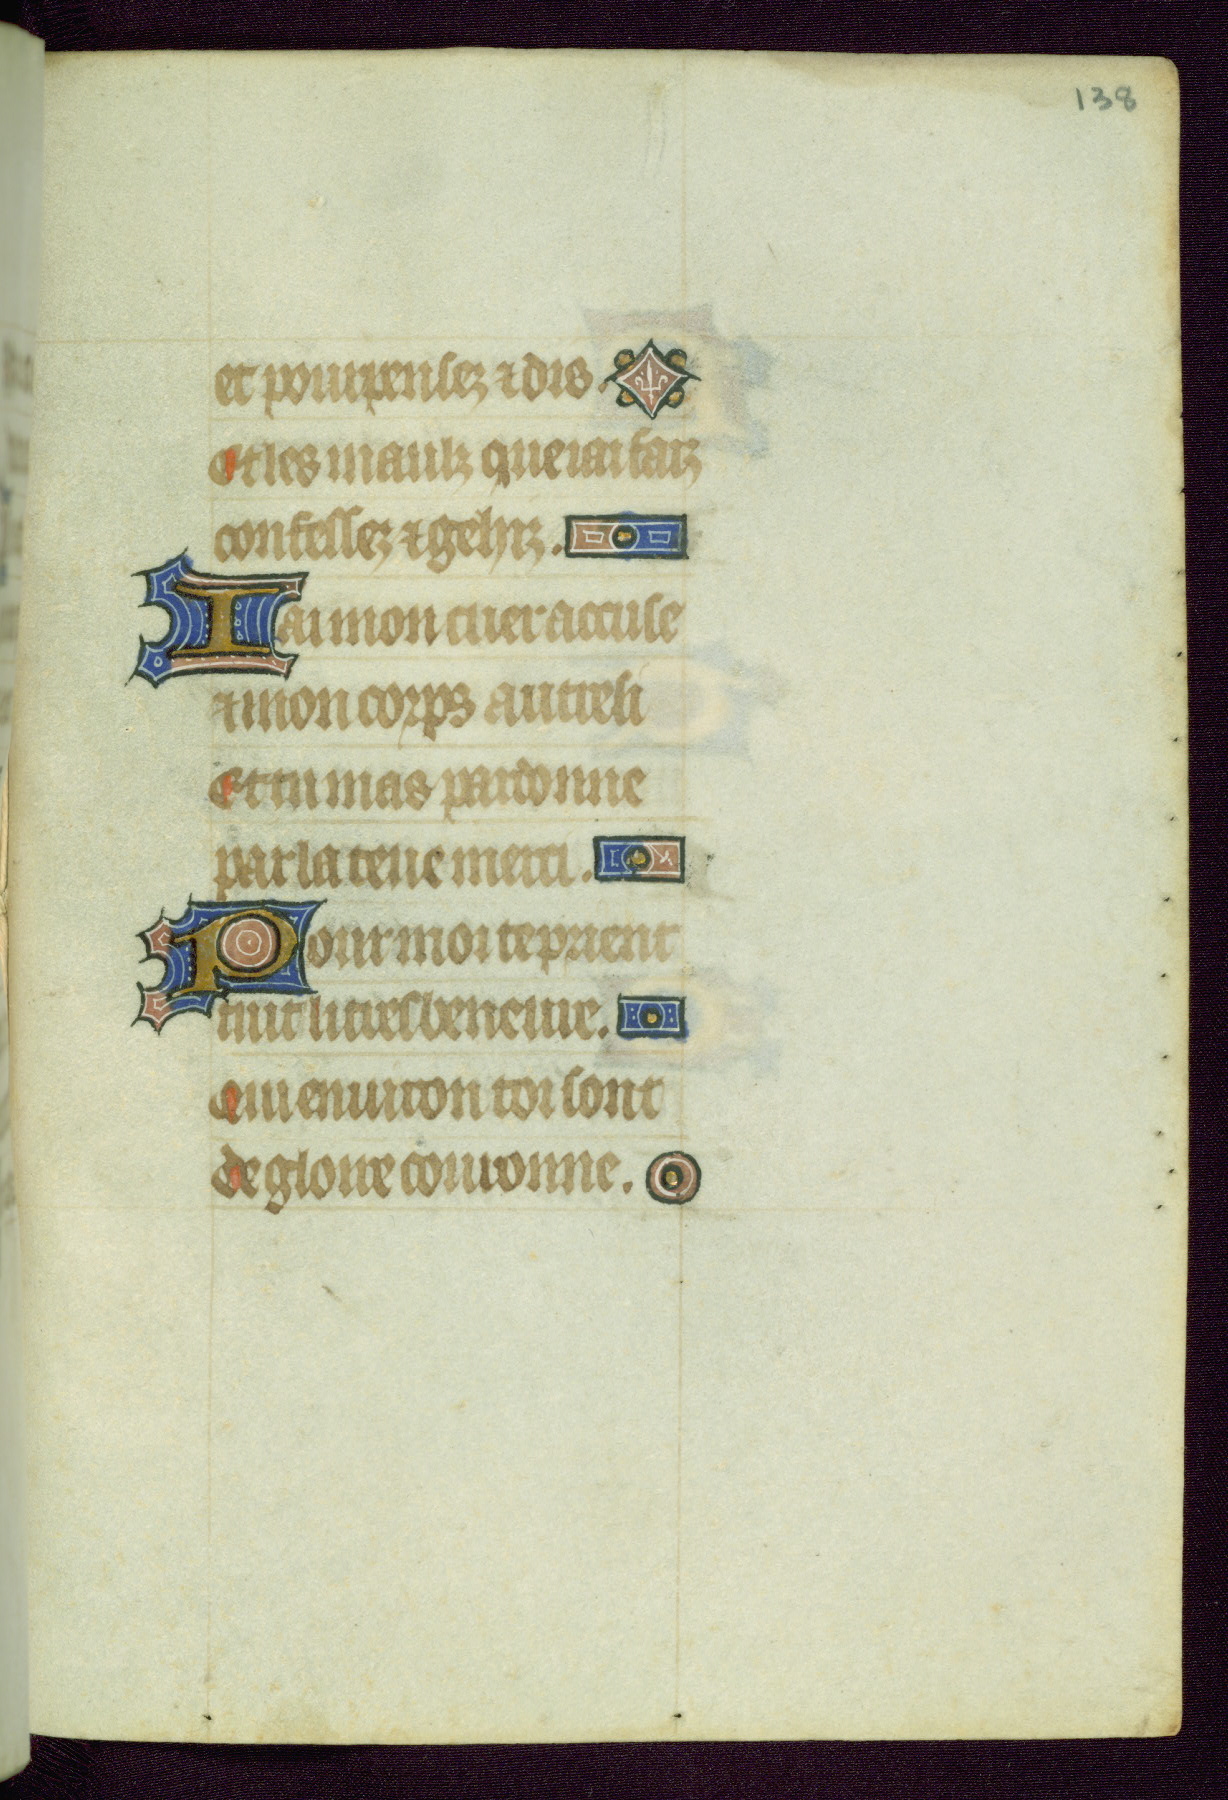 138
et pourpensez ⁊ dis.
et les maulz que iai faiz
confessez ⁊ gehiz.
Iai mon cuer accuse
⁊ mon corps autresi
et tu mas pardonne
par la teue merci.
Pour moi te prient
tuit li tresbeneure.
qui enuiron toi sont
de gloire couronne.